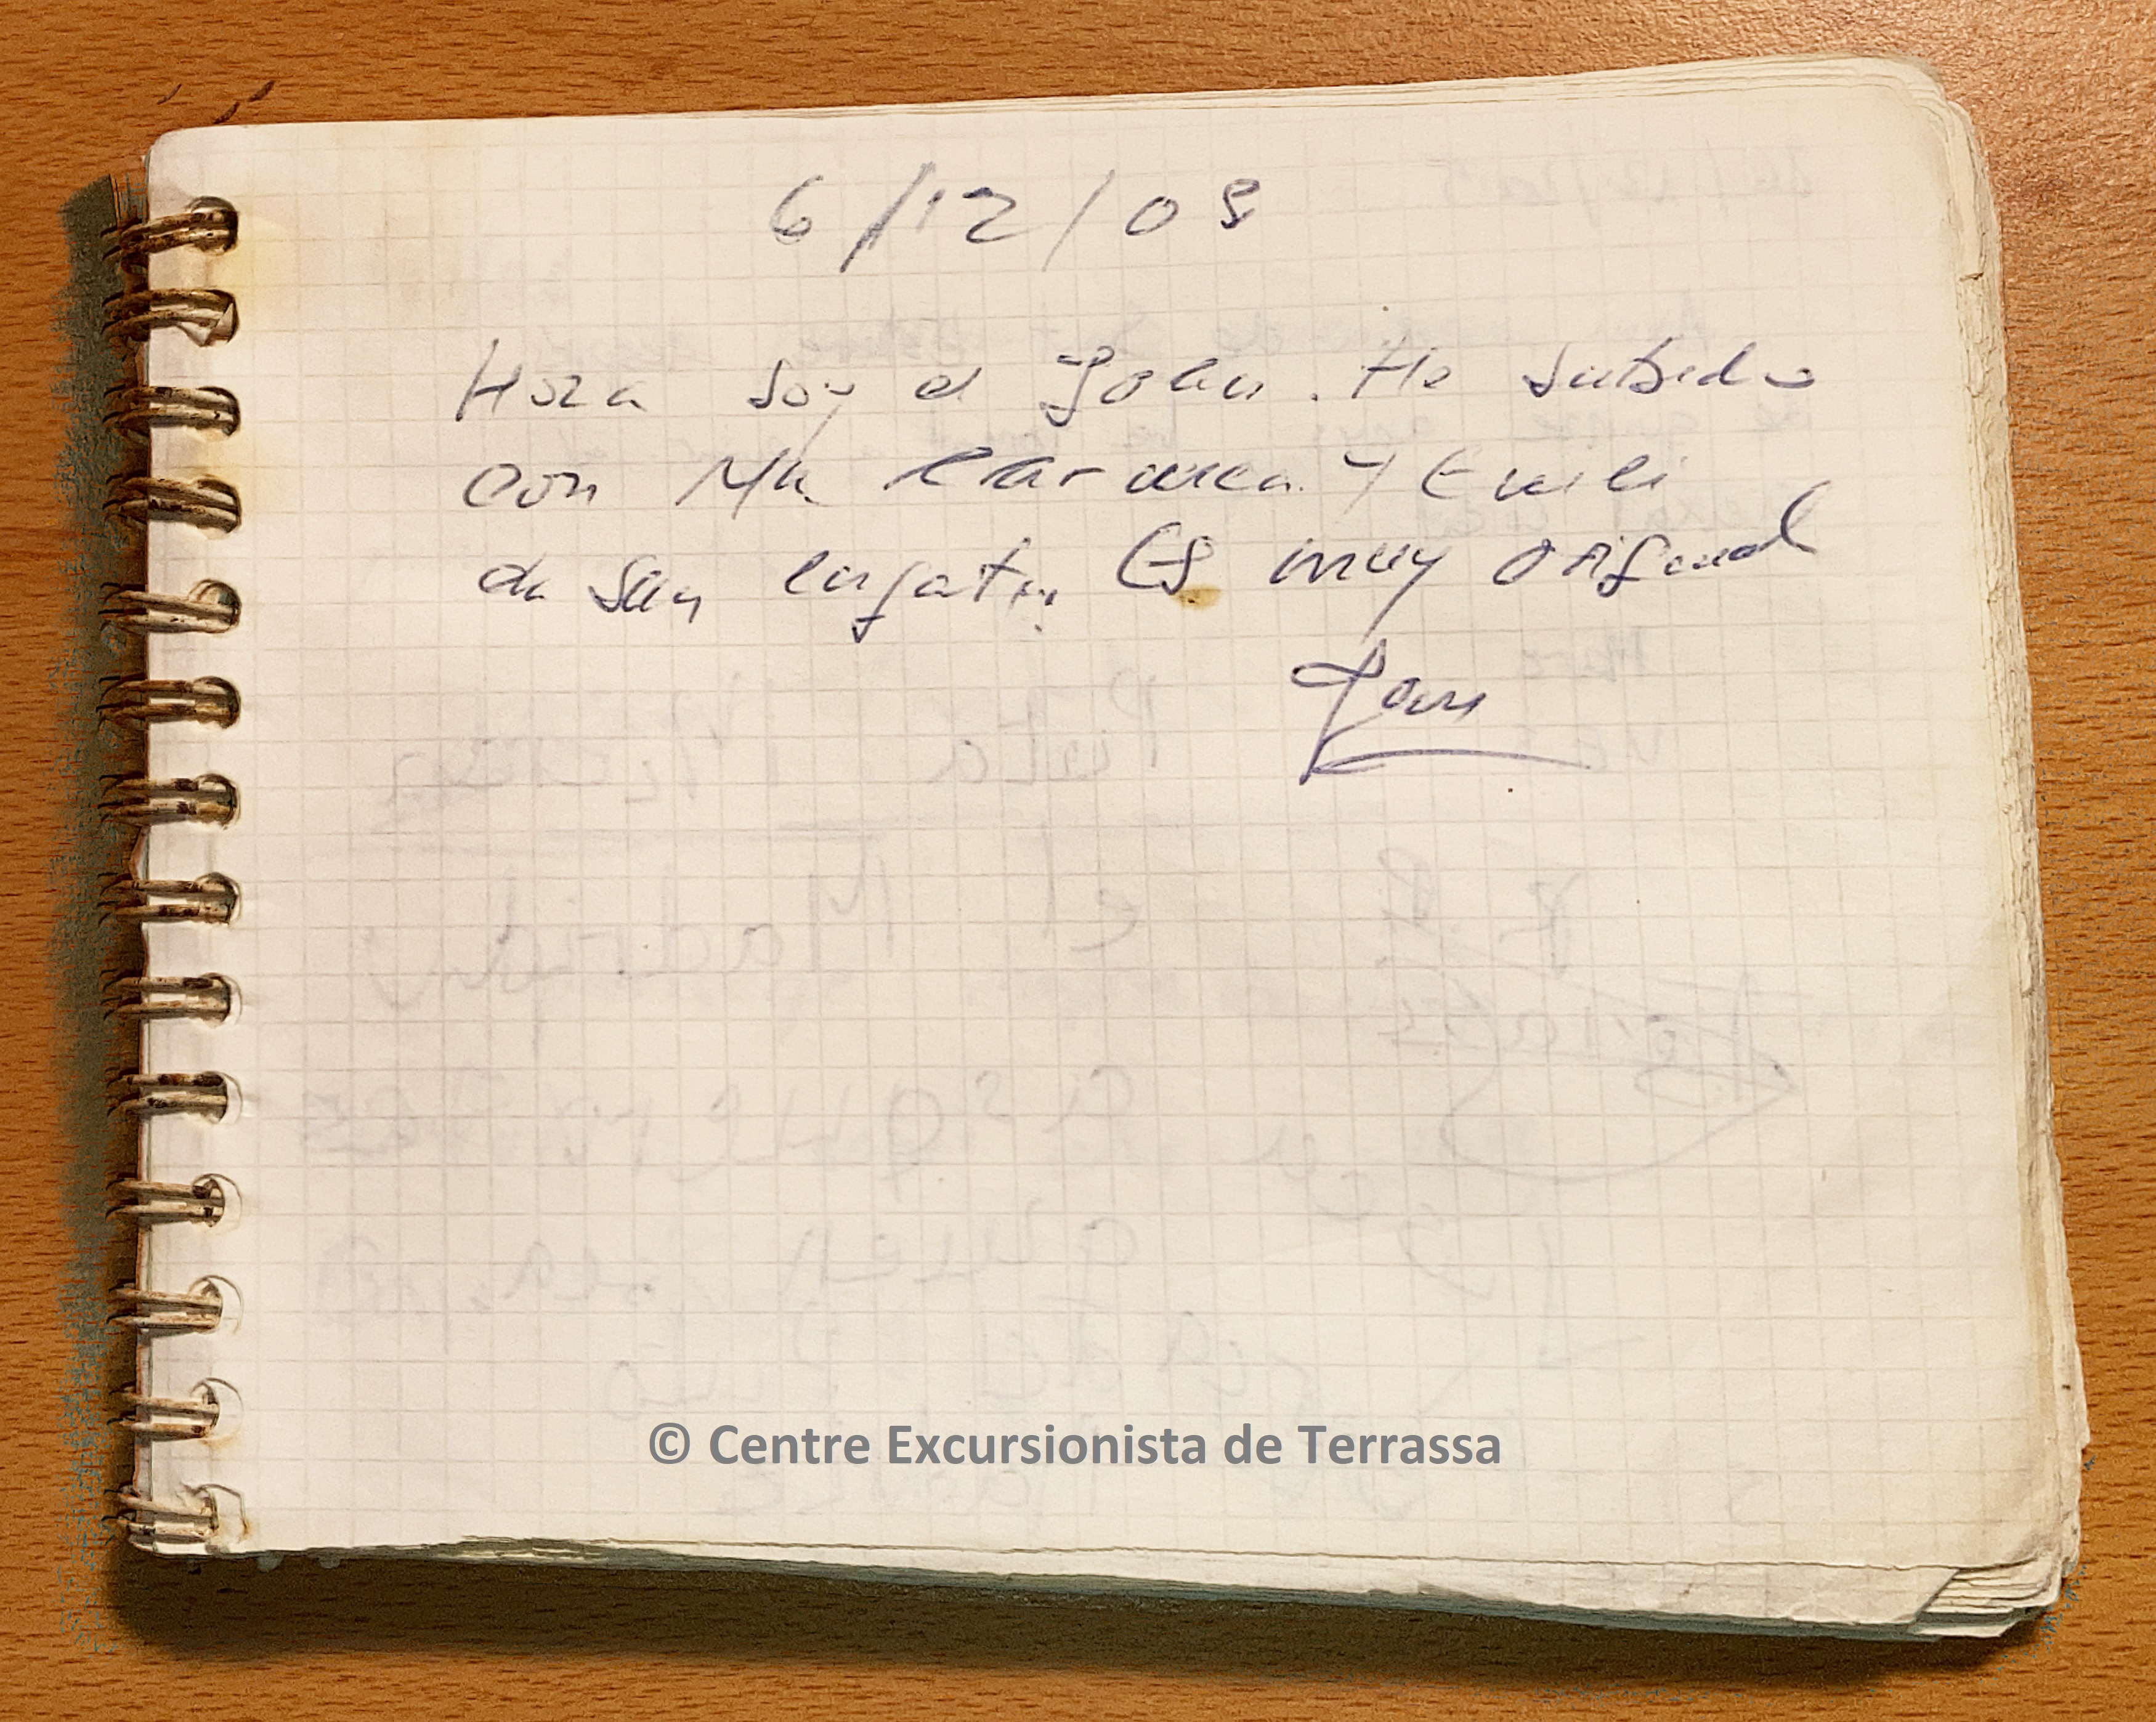 6/12/08
Hora soy el John. He subido
con Mª Carmen y Emili
de San Cugat. Es muy original
© Centre Excursionista de Terrassa